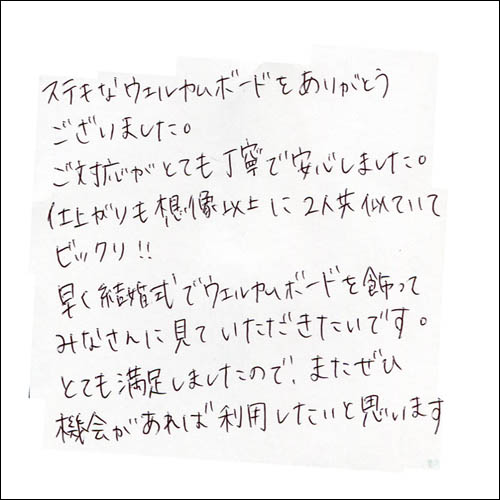 ステキなウェルカムボードをありがとう
ございました。
ご対応がとても丁寧で安心しました。
仕上がりも想像以上に2人共似ていて
ビックリ!!
早く結婚式でウェルカムボードを飾って
みなさんに見ていただきたいです。
とても満足しましたので、またぜひ
機会があれば利用したいと思います